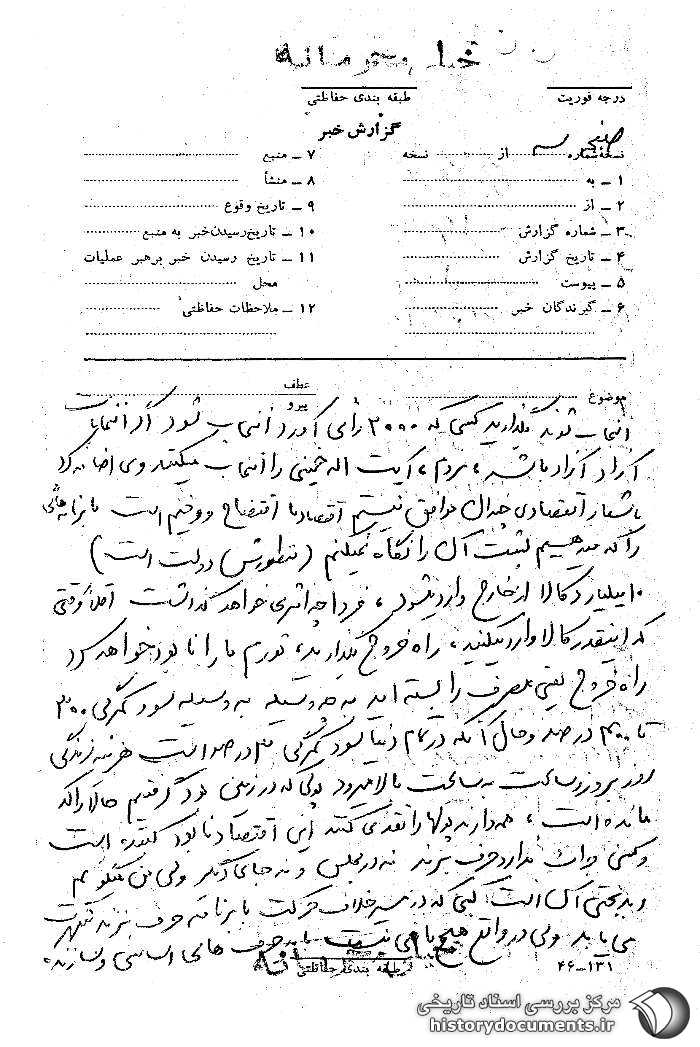 خیلی محرمانه
طبقه بندی حفاظتی
درجه فوریت
گزارش خبر
صفحه سه
نسخه شماره از نسخه
۱ ـ به
۲ ـ از
۳ ـ شماره گزارش
۴ ـ تاریخ گزارش
۵ ـ پیوست
۶ ـ گیرندگان خبر
۷ ـ منبع
۸ ـ منشأ
۹ ـ تاریخ وقوع
۱۰ ـ تاریخ رسیدن خبر به منبع
۱۱ ـ تاریخ رسیدن خبر برهبر عملیات
محل
۱۲ ـ ملاحظات حفاظتی
موضوع
عطف
پیرو
انتخاب شوند بگذارید کسی که ۳۰۰۰ رأی آورد انتخاب شود اگر انتخابات
آزاد آزاد باشد، مردم، آیت اله خمینی را انتخاب میکنند وی اضافه کرد
با شعار اقتصادی موافق نیستم اقتصاد ما افتضاح و وخیم است ما برنامه‌هائی
را که میدهیم پشت آن را نگاه نمیکنیم (منظورش دولت است)
۱۰ میلیارد کالا از خارج وارد میشود، فردا چه اثری خواهد گذاشت اقلا وقتی
که اینقدر کالا وارد میکنید، راه خروج بگذارید، تورم ما را نابود خواهد کرد
راه خروج یعنی مصرف را بسته اید به چه وسیله به وسیله سود گمرکی ۳۰۰
تا ۴۰۰ درصد و حال آنکه در تمام دنیا سود گمرکی ۳ درصد است هزینه زندگی
روز بروز و ساعت به ساعت بالا میرود پولی که در زمین خود گرفتیم حالا راکد
مانده است، همه دارند پولها را نقدی کنند این اقتصاد نابود کننده است
و کسی جرات ندارد حرف بزند نه در مجلس و نه جای دیگر ولی من میگویم
و بدبختی آن است کسی که در مسیر خلاف حرکت با برنامه حرف بزند شهرت
می یابد ولی در واقع هیچ یاغی نیست باید حرف های اساسی و سازنده
طبقه بندی حفاظتی
۴۶ـ۱۳۱
مرکز بررسی اسناد تاریخی
historydocuments.ir